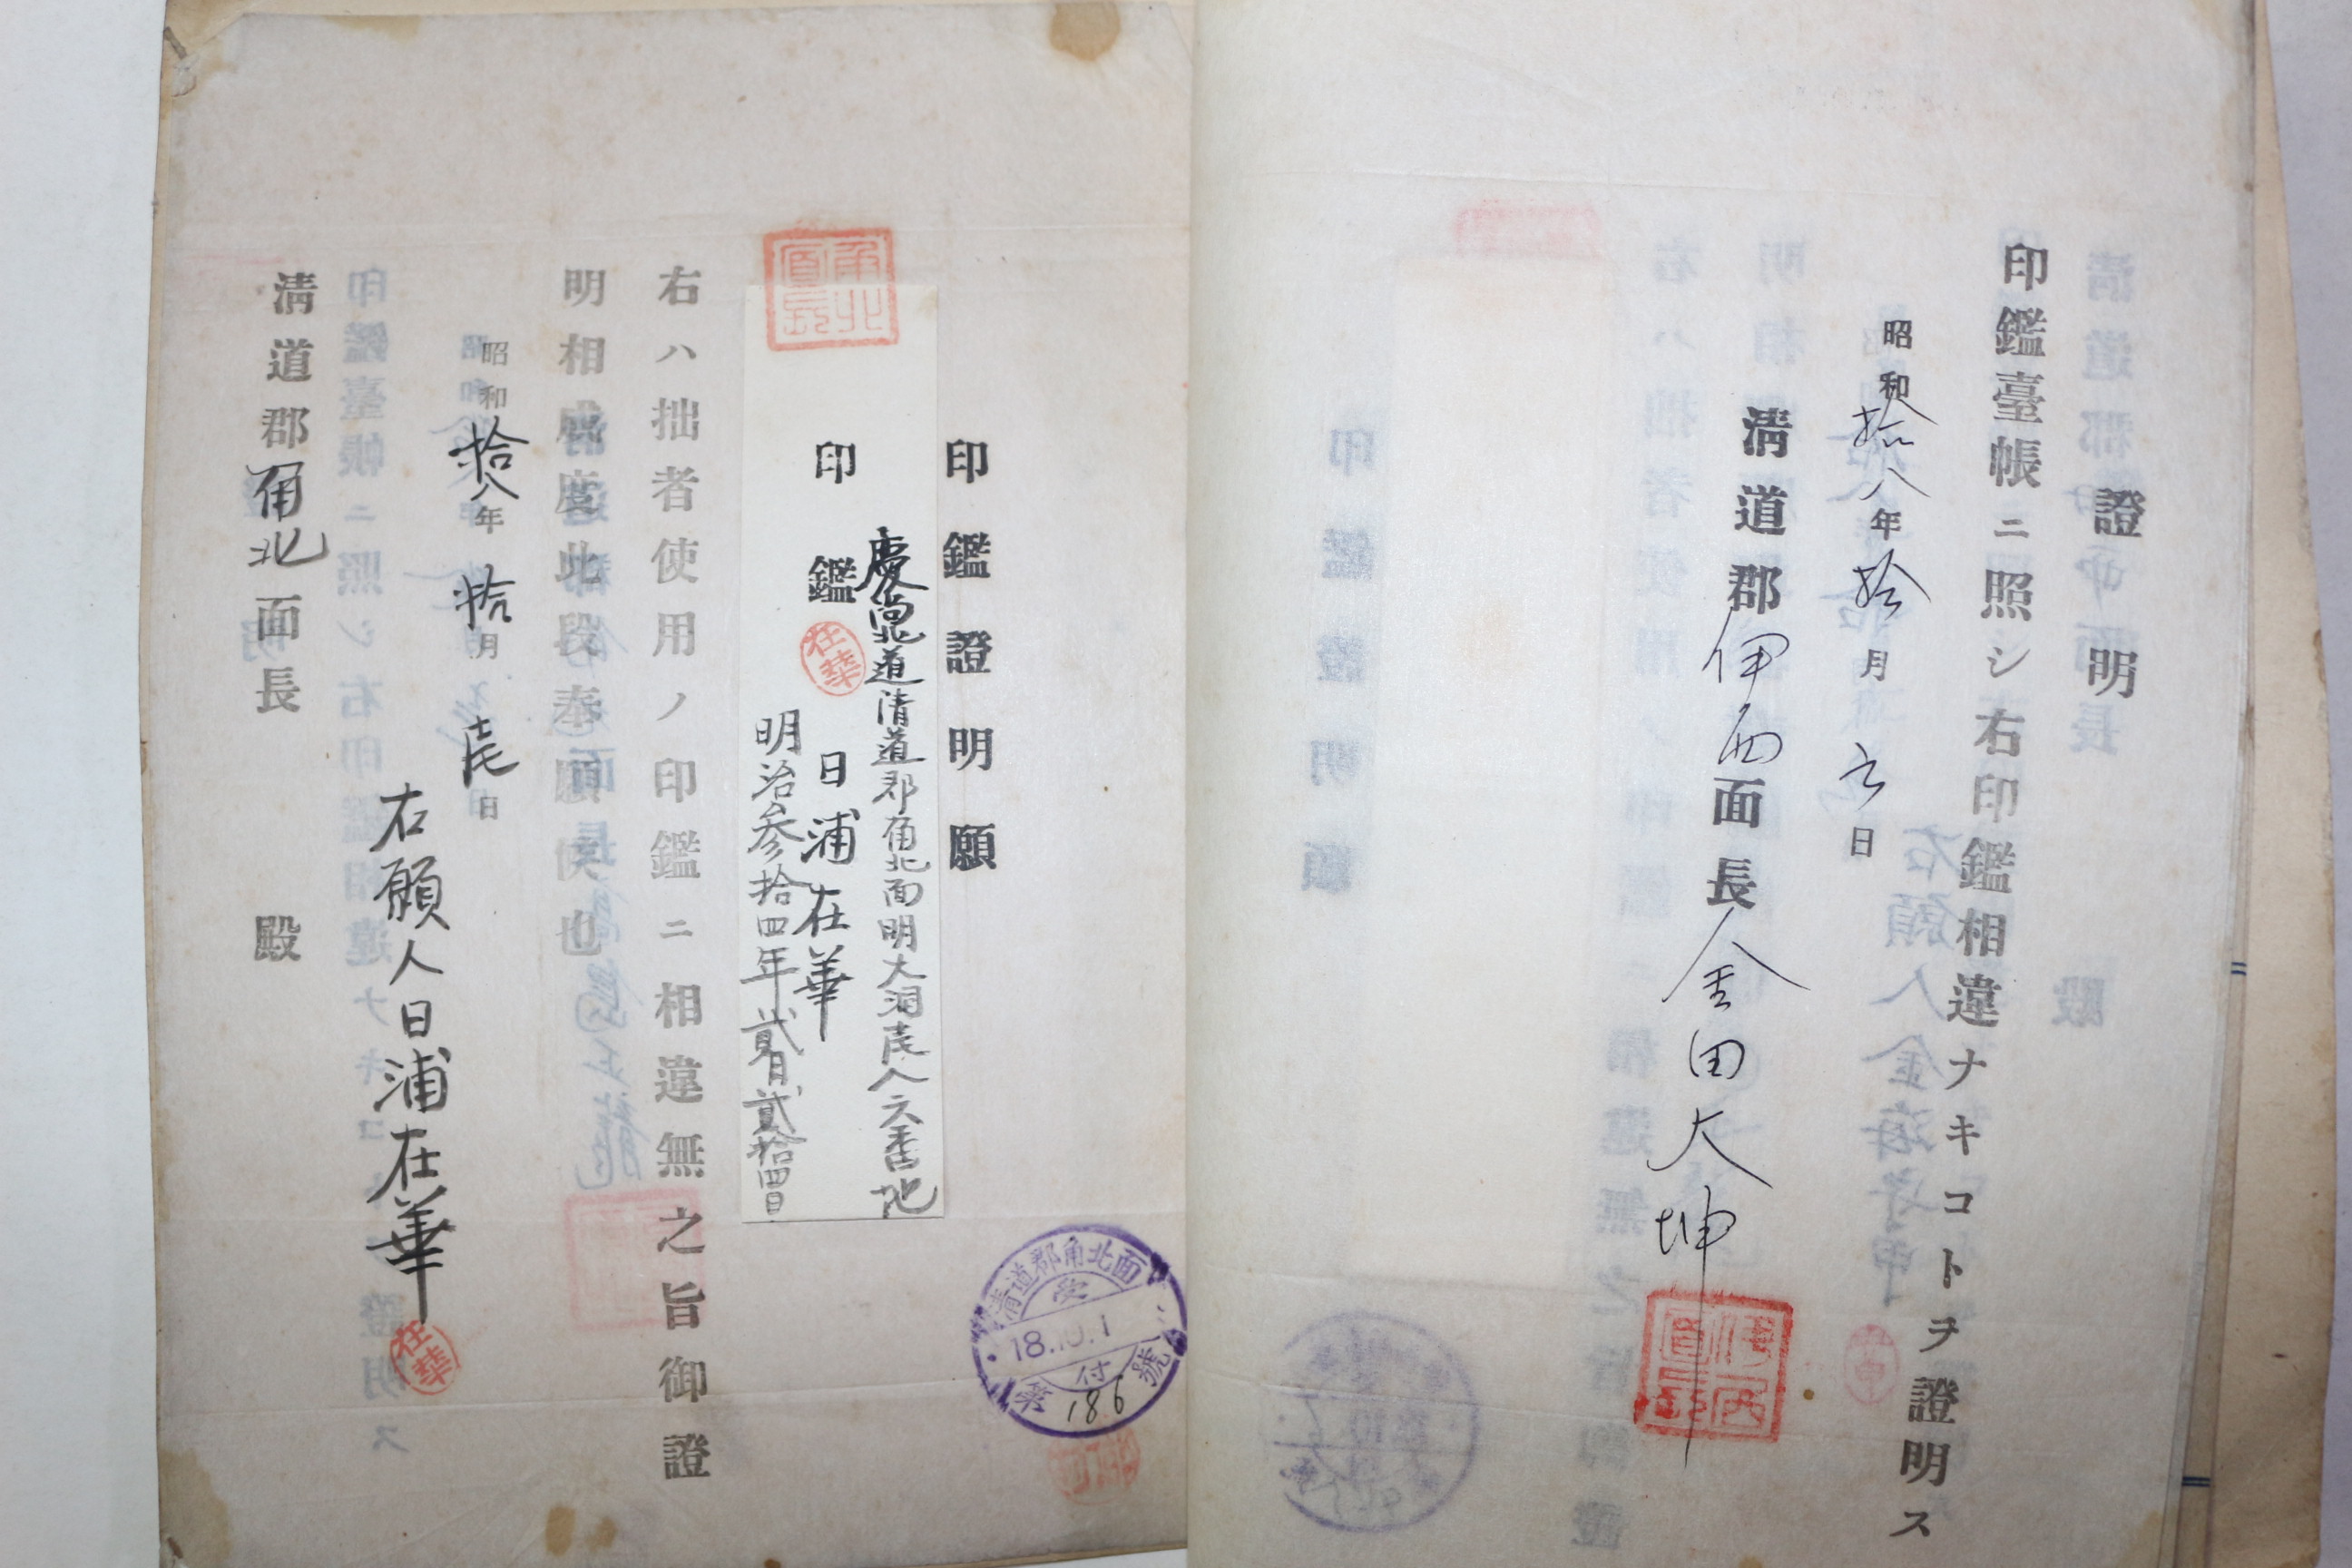 證明
印鑑臺帳ニ照シ右印鑑相違ナキコトヲ證明ス
昭和拾八年拾月 日
清道郡伊西面長金田大坤
伊西面長
印鑑證明願
慶尚北道清道郡角北面明大洞壱八六番地
印鑑 在華 日浦在華
明治参拾四年貳月貳拾四日
角北面長
右ハ拙者使用ノ印鑑ニ相違無之旨御證
明相成度此段奉願候也
昭和拾八年拾月壱日
右願人日浦在華
在華
清道郡角北面長 殿
清道郡角北面
受
18.10.1
付
第186號